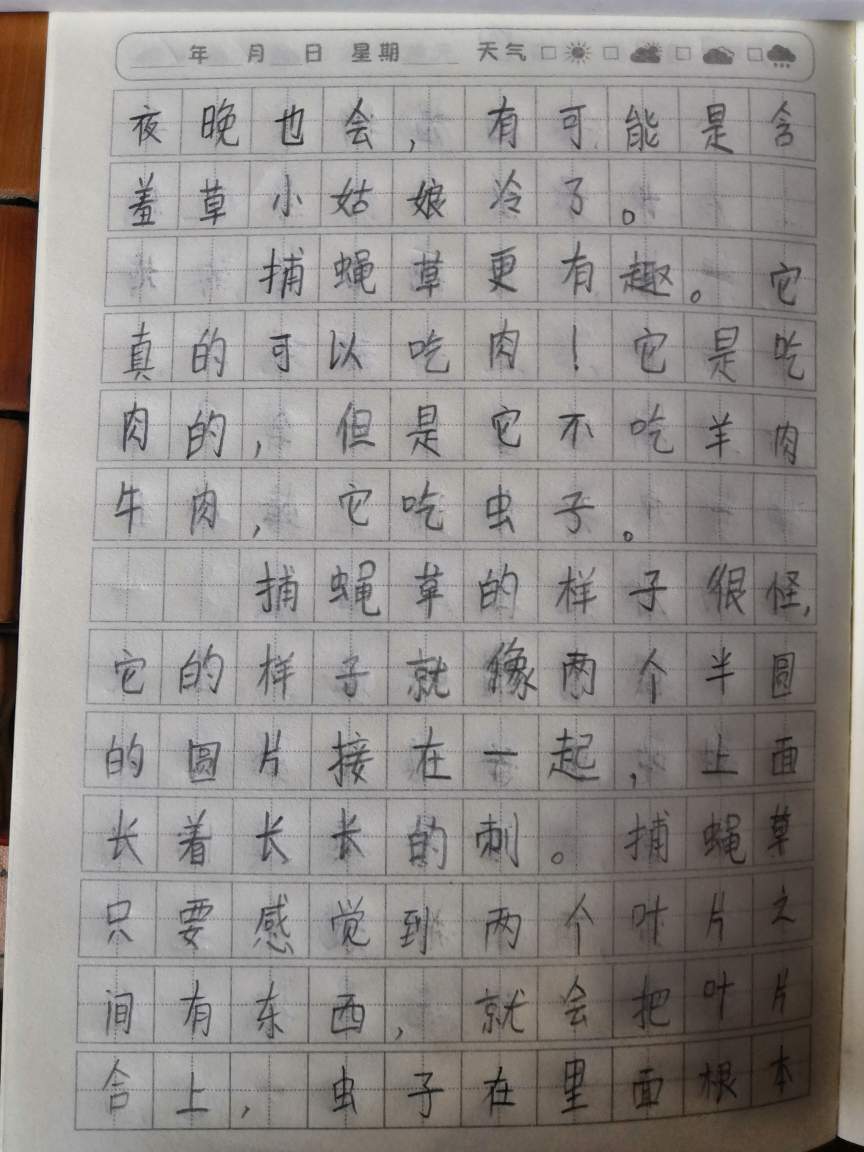 年 月 日 星期 天气
夜晚也会，有可能是含
羞草小姑娘冷了。
捕蝇草更有趣。它
真的可以吃肉！它是吃
肉的，但是它不吃羊肉
牛肉，它吃虫子。
捕蝇草的样子很怪，
它的样子就像两个半圆
的圆片接在一起，上面
长着长长的刺。捕蝇草
只要感觉到两个叶片之
间有东西，就会把叶片
合上，虫子在里面根本